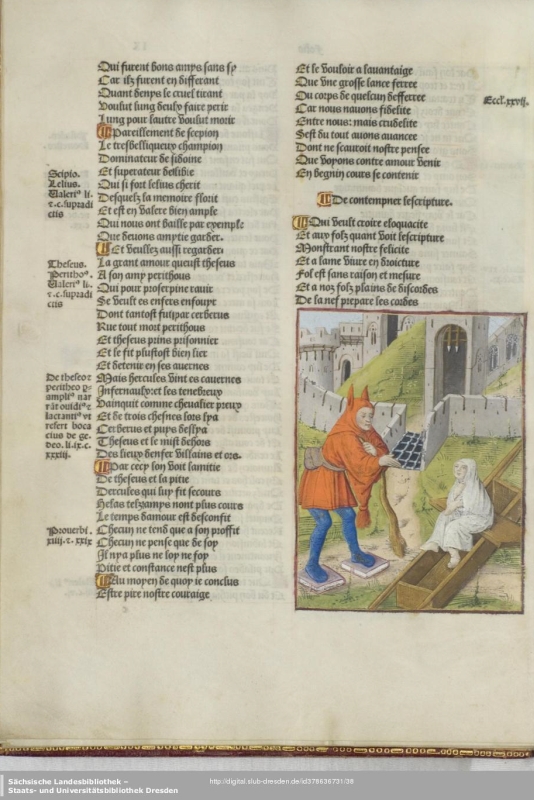 Qui furent bons amys sans sy
Car ilz furent en differant
Quant denys le cruel tirant
Voulut lung deulx faire perir
Lung pour lautre voulut morir
Pareillement de scepion
Le tresbelliqueux champion
Dominateur de sidoine
Et superateur
Qui si fort lelius cherit
Desquelz la memoire florit
Et est en valere bien ample
Qui nous ont baille par exemple
Que devons amytie garder.
Et veullez aussi regarder
La grant amour queust theseus
A son amy perithous
Qui pour proserpine ravir
Se veult es enfers enfouyr
Dont tantost fut par cerberus
Rue tout mort perithous
Et theseus prins prisonnier
Et le fit plustost bien lier
Et detenir en ses avernes
Mais hercules vint es cavernes
Infernaulx: et les tenebreux
Vainquit comme chevalier preux
Et de trois chesnes lors lya
Cerberus et puys deslya
Theseus et le mist dehors
Des lieux denfer villains et ors.
Par cecy lon voit lamitie
De theseus et la pitie
Dercules qui luy fit secours
Helas telz amys nont plus cours
Le temps damour est desconfit
Checun ne tend que a son proffit
Checun ne pense que de soy
Il nya plus ne loy ne foy
Pitie et constance nest plus
Au moyen de quoy ie conclus
Estre pire nostre couraige
Scipio.
Lelius.
Valeriꝰ li.
⁊.c. supradi
ctis
Theseus.
Perithoꝰ.
Valeriꝰ li.
⁊.c. supradi
ctis
De theseo ⁊
peritheo
ampliꝰ nar
rāt ouidiꝰ ⁊
lactantiꝰ vt
refert boca
cius de ge-
deo. li. ix. c.
xxxiii.
Prouerbi.
xiiii. ⁊. xxix
Et le vouloir a lavantaige
Que vne grosse lance ferree
Du corps de quelcun defferree
Car nous navons fidelite
Entre nous: mais crudelite
Sest du tout avons avancee
Dont ne scauroit nostre pensee
Que voyons contre amour venir
En begnin cours se contenir
Eccl. xxvii.
De contempner lescripture.
Qui veult croire eloquacite
Et aux folz quant voit lescripture
Monstrant nostre felicite
Et a lame vivre en droicture
Fol est sans raison et mesure
Et a noz folz plains de discordes
De la nef prepare les cordes
Sächsische Landesbibliothek –
Staats- und Universitätsbibliothek Dresden
http://digital.slub-dresden.de/id378636731/38